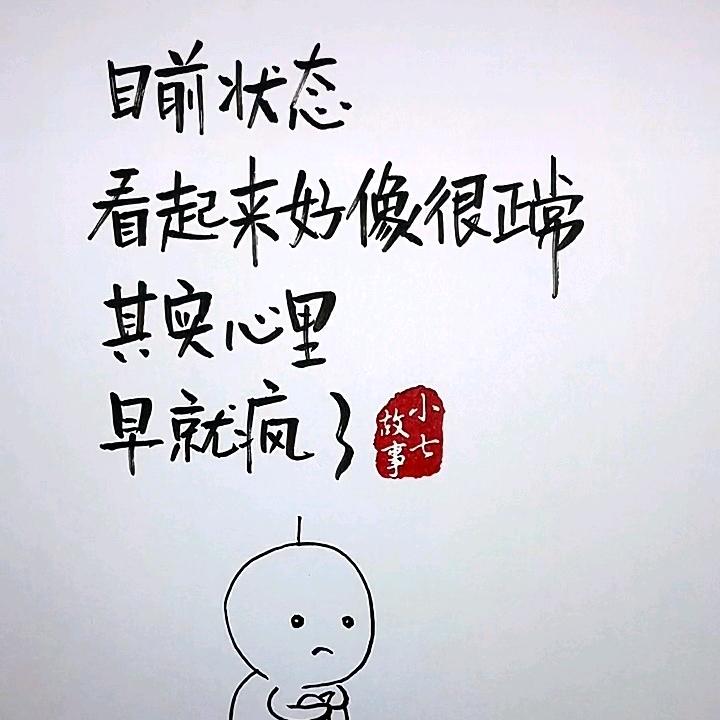 目前状态
看起来好像很正常
其实心里
早就疯了
小七
故事